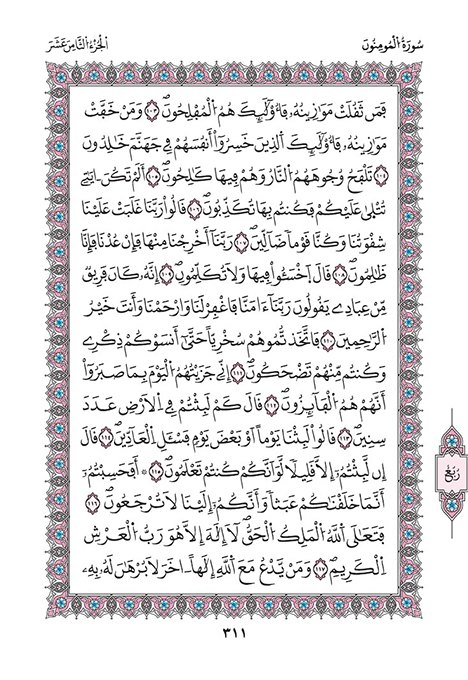 سُورَةُ الْمُومِنُونَ
اَلْجُزْءُ الثَّامِنَ عَشَرَ
فَمَن ثَقُلَتْ مَوَٰزِينُهُۥ فَأُوْلَٰٓئِكَ هُمُ الْمُفْلِحُونَ ١٠٣ وَمَنْ خَفَّتْ
مَوَٰزِينُهُۥ فَأُوْلَٰٓئِكَ اَلذِينَ خَسِرُوٓاْ أَنفُسَهُمْ فِي جَهَنَّمَ خَٰلِدُونَ
١٠٤ تَلْفَحُ وُجُوهَهُمُ النَّارُ وَهُمْ فِيهَا كَٰلِحُونَ ١٠٥ أَلَمْ تَكُنَ اٰيَٰتِے
تُتْلَىٰ عَلَيْكُمْ فَكُنتُم بِهَا تُكَذِّبُونَ ١٠٦ قَالُواْ رَبَّنَا غَلَبَتْ عَلَيْنَا
شِقْوَتُنَا وَكُنَّا قَوْماً ضَآلِّينَ ١٠٧ رَبَّنَآ أَخْرِجْنَا مِنْهَا فَإِنْ عُدْنَا فَإِنَّا
ظَٰلِمُونَ ١٠٨ قَالَ اَخْسَـُٔواْ فِيهَا وَلَا تُكَلِّمُونِ ١٠٩ إِنَّهُۥ كَانَ فَرِيقٌ
مِّنْ عِبَادِے يَقُولُونَ رَبَّنَآ ءَامَنَّا فَاغْفِرْ لَنَا وَارْحَمْنَا وَأَنتَ خَيْرُ
الرَّٰحِمِينَ ١١٠ فَاتَّخَذتُّمُوهُمْ سُخْرِيّاً حَتَّىٰٓ أَنسَوْكُمْ ذِكْرِے
وَكُنتُم مِّنْهُمْ تَضْحَكُونَ ١١١ إِنِّے جَزَيْتُهُمُ الْيَوْمَ بِمَا صَبَرُوٓاْ
أَنَّهُمْ هُمُ الْفَآئِزُونَ ١١٢ قَالَ كَمْ لَبِثْتُمْ فِي اِلْأَرْضِ عَدَدَ
سِنِينَ ١١٣ قَالُواْ لَبِثْنَا يَوْماً أَوْ بَعْضَ يَوْمٍ فَسْـَٔلِ الْعَآدِّينَ ١١٤ قَالَ
إِن لَّبِثْتُمُۥٓ إِلَّا قَلِيلًا لَّوَ اَنَّكُمْ كُنتُمْ تَعْلَمُونَ ١١٥ ۞ أَفَحَسِبْتُمُۥٓ
أَنَّمَا خَلَقْنَٰكُمْ عَبَثاً وَأَنَّكُمُۥٓ إِلَيْنَا لَا تُرْجَعُونَ ١١٦
فَتَعَٰلَى اَللَّهُ الْمَلِكُ الْحَقُّ لَآ إِلَٰهَ إِلَّا هُوَ رَبُّ الْعَرْشِ
اِلْكَرِيمِ ١١٧ وَمَنْ يَّدْعُ مَعَ اَللَّهِ إِلَٰهاً اٰخَرَ لَا بُرْهَٰنَ لَهُۥ بِهِۦ
رُبُع
٣١١